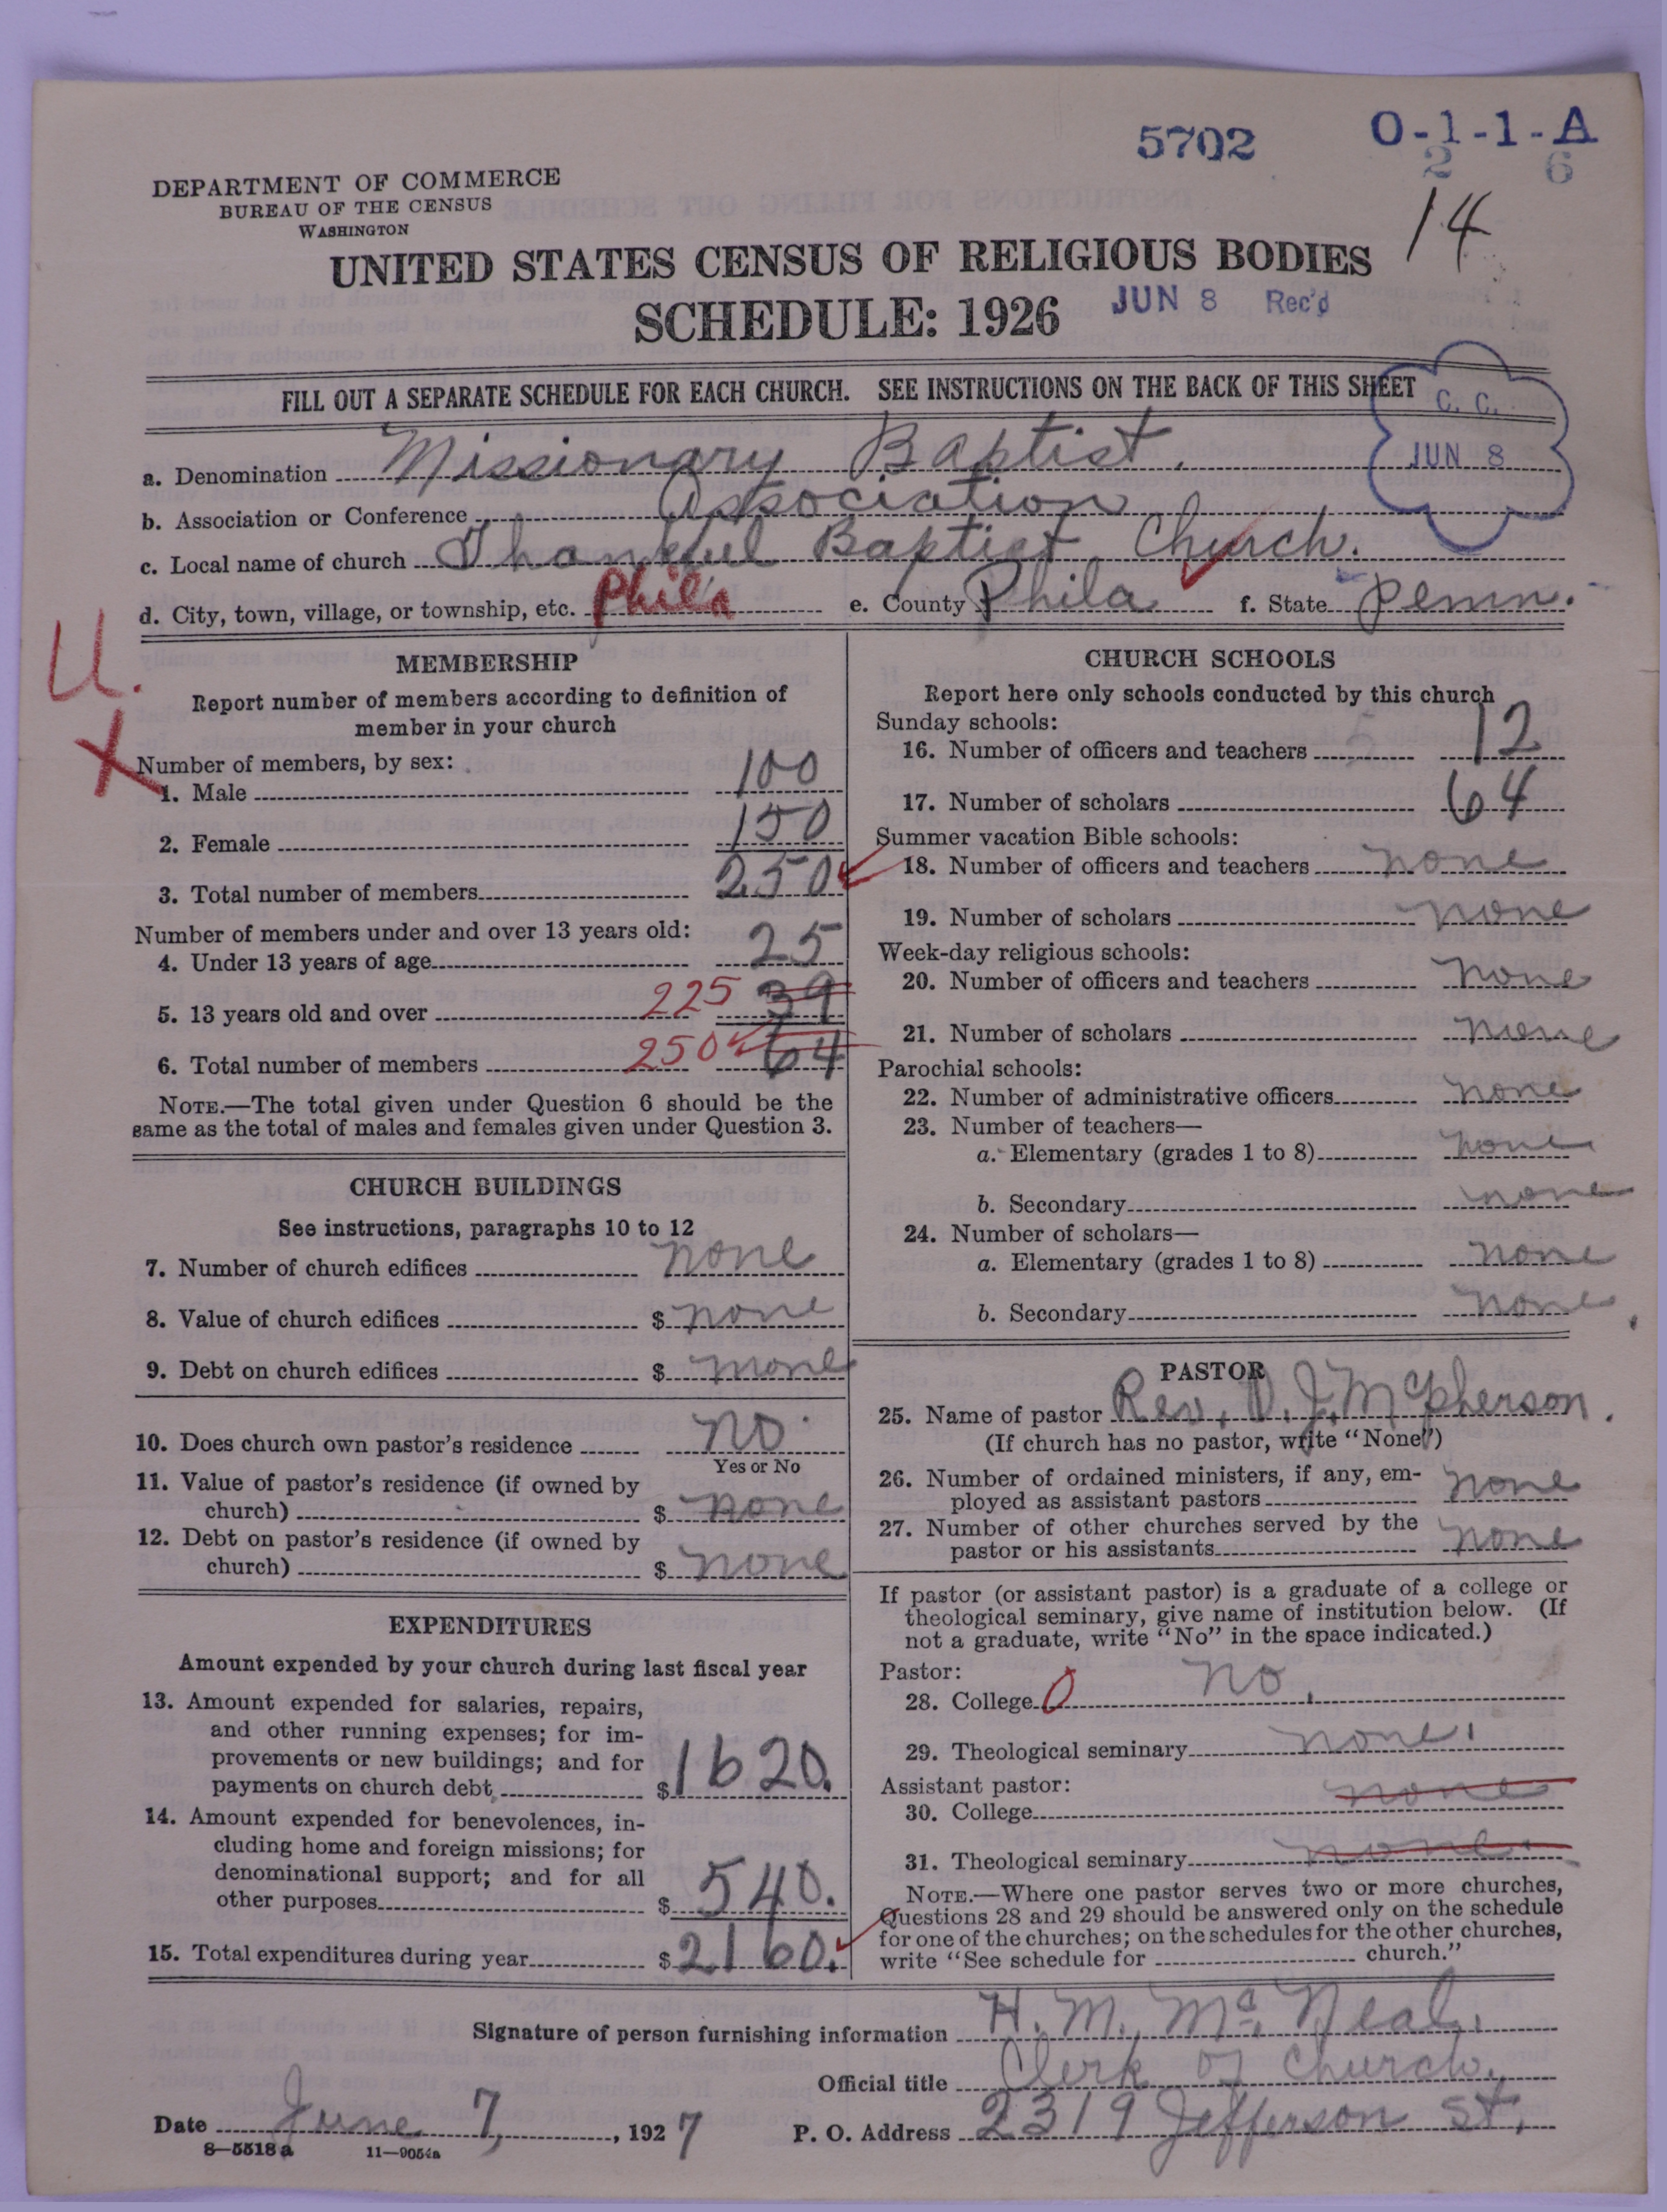 5702 O-1-1-A
2 6
14
DEPARTMENT OF COMMERCE
BUREAU OF THE CENSUS
WASHINGTON
UNITED STATES CENSUS OF RELIGIOUS BODIES
SCHEDULE: 1926 JUN 8 Rec'd
FILL OUT A SEPARATE SCHEDULE FOR EACH CHURCH. SEE INSTRUCTIONS ON THE BACK OF THIS SHEET
C. C.
JUN 8
a. Denomination Missionary Baptist.
b. Association or Conference Association
c. Local name of church Thankful Baptist Church.
d. City, town, village, or township, etc. Phila e. County Phila f. State Penn.
U.
X
MEMBERSHIP
Report number of members according to definition of
member in your church
Number of members, by sex:
1. Male 100
2. Female 150
3. Total number of members 250
Number of members under and over 13 years old:
4. Under 13 years of age 25
5. 13 years old and over 225 39
6. Total number of members 250 64
NOTE.—The total given under Question 6 should be the
same as the total of males and females given under Question 3.
CHURCH BUILDINGS
See instructions, paragraphs 10 to 12
7. Number of church edifices none
8. Value of church edifices $ none
9. Debt on church edifices $ none
10. Does church own pastor's residence no.
Yes or No
11. Value of pastor's residence (if owned by
church) $ none
12. Debt on pastor's residence (if owned by
church) $ none
EXPENDITURES
Amount expended by your church during last fiscal year
13. Amount expended for salaries, repairs,
and other running expenses; for im-
provements or new buildings; and for
payments on church debt $1620.
14. Amount expended for benevolences, in-
cluding home and foreign missions; for
denominational support; and for all
other purposes $ 540.
15. Total expenditures during year $2160.
CHURCH SCHOOLS
Report here only schools conducted by this church
Sunday schools:
16. Number of officers and teachers 12
17. Number of scholars 64
Summer vacation Bible schools:
18. Number of officers and teachers none
19. Number of scholars none
Week-day religious schools:
20. Number of officers and teachers none
21. Number of scholars none
Parochial schools:
22. Number of administrative officers none
23. Number of teachers—
a. Elementary (grades 1 to 8) none
b. Secondary none
24. Number of scholars—
a. Elementary (grades 1 to 8) none
b. Secondary none
PASTOR
25. Name of pastor Rev. D. J. McPherson.
(If church has no pastor, write "None")
26. Number of ordained ministers, if any, em-
ployed as assistant pastors none
27. Number of other churches served by the
pastor or his assistants none
If pastor (or assistant pastor) is a graduate of a college or
theological seminary, give name of institution below. (If
not a graduate, write "No" in the space indicated.)
Pastor:
28. College 0 No.
29. Theological seminary none.
Assistant pastor:
30. College none
31. Theological seminary none.
NOTE.—Where one pastor serves two or more churches,
Questions 28 and 29 should be answered only on the schedule
for one of the churches; on the schedules for the other churches,
write "See schedule for church."
Signature of person furnishing information H. M. McNeal.
Official title Clerk of Church.
Date June 7, , 1927 P. O. Address 2319 Jefferson St.
8—5518a 11—9054a